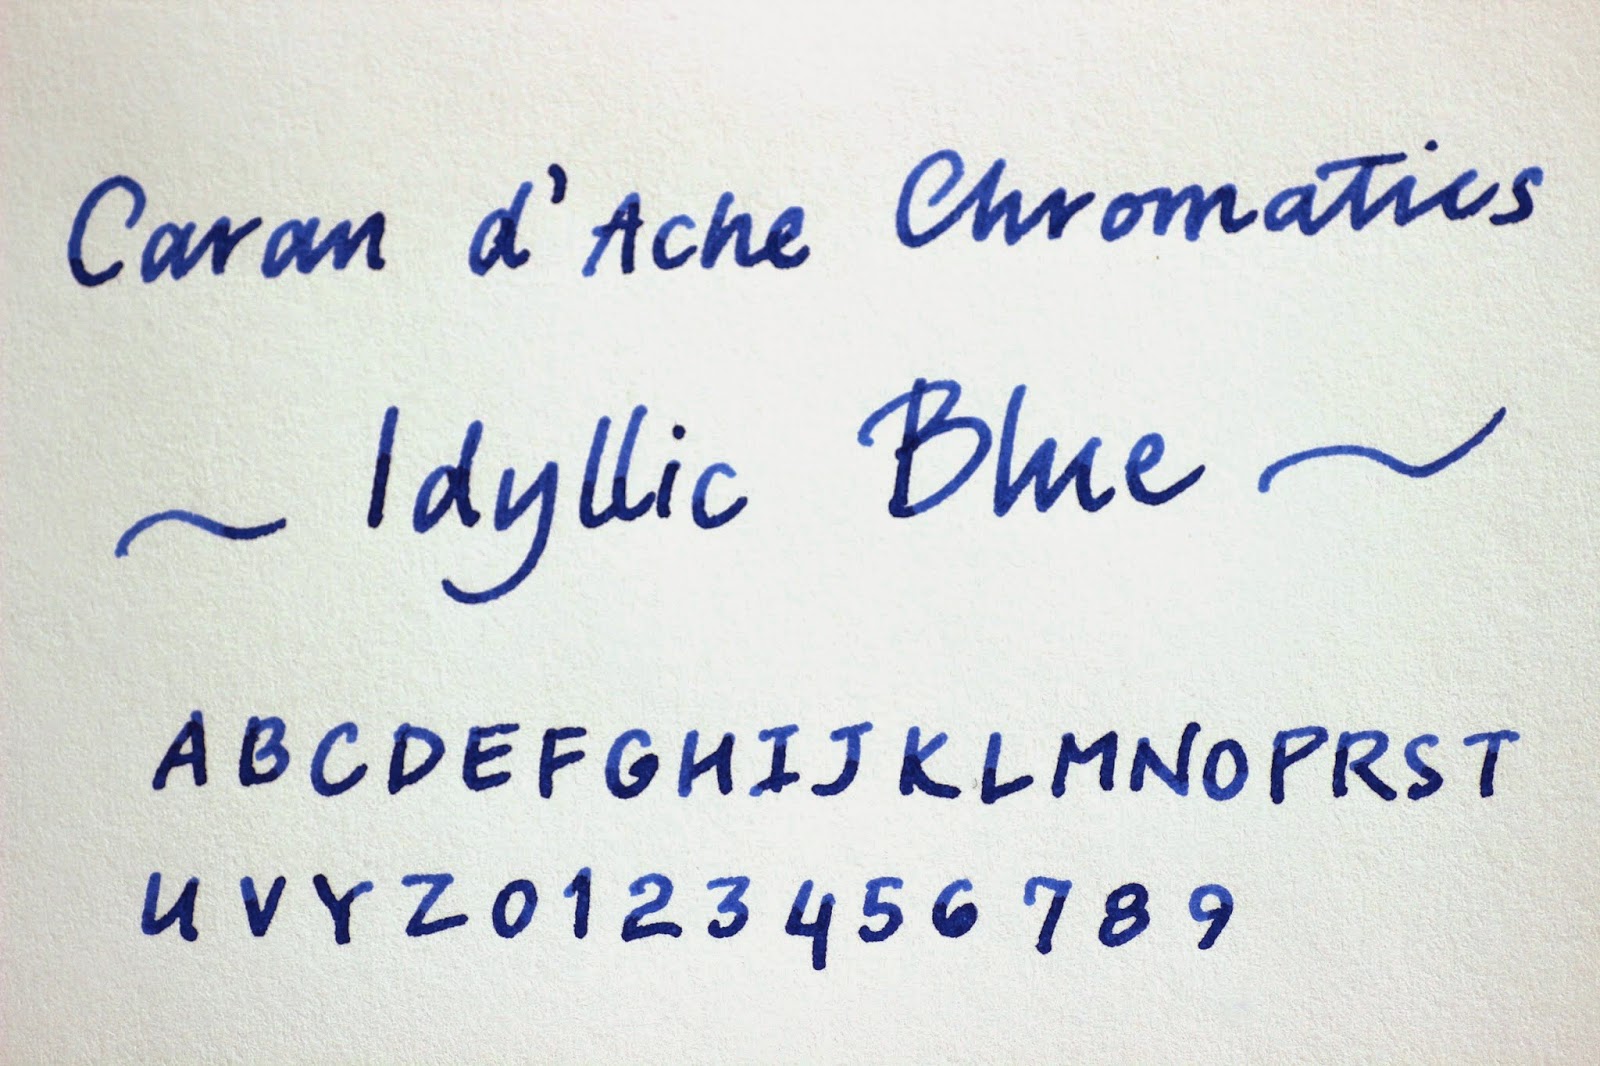 Caran d'Ache Chromatics
~ Idyllic Blue ~
A B C D E F G H I J K L M N O P R S T
U V Y Z 0 1 2 3 4 5 6 7 8 9